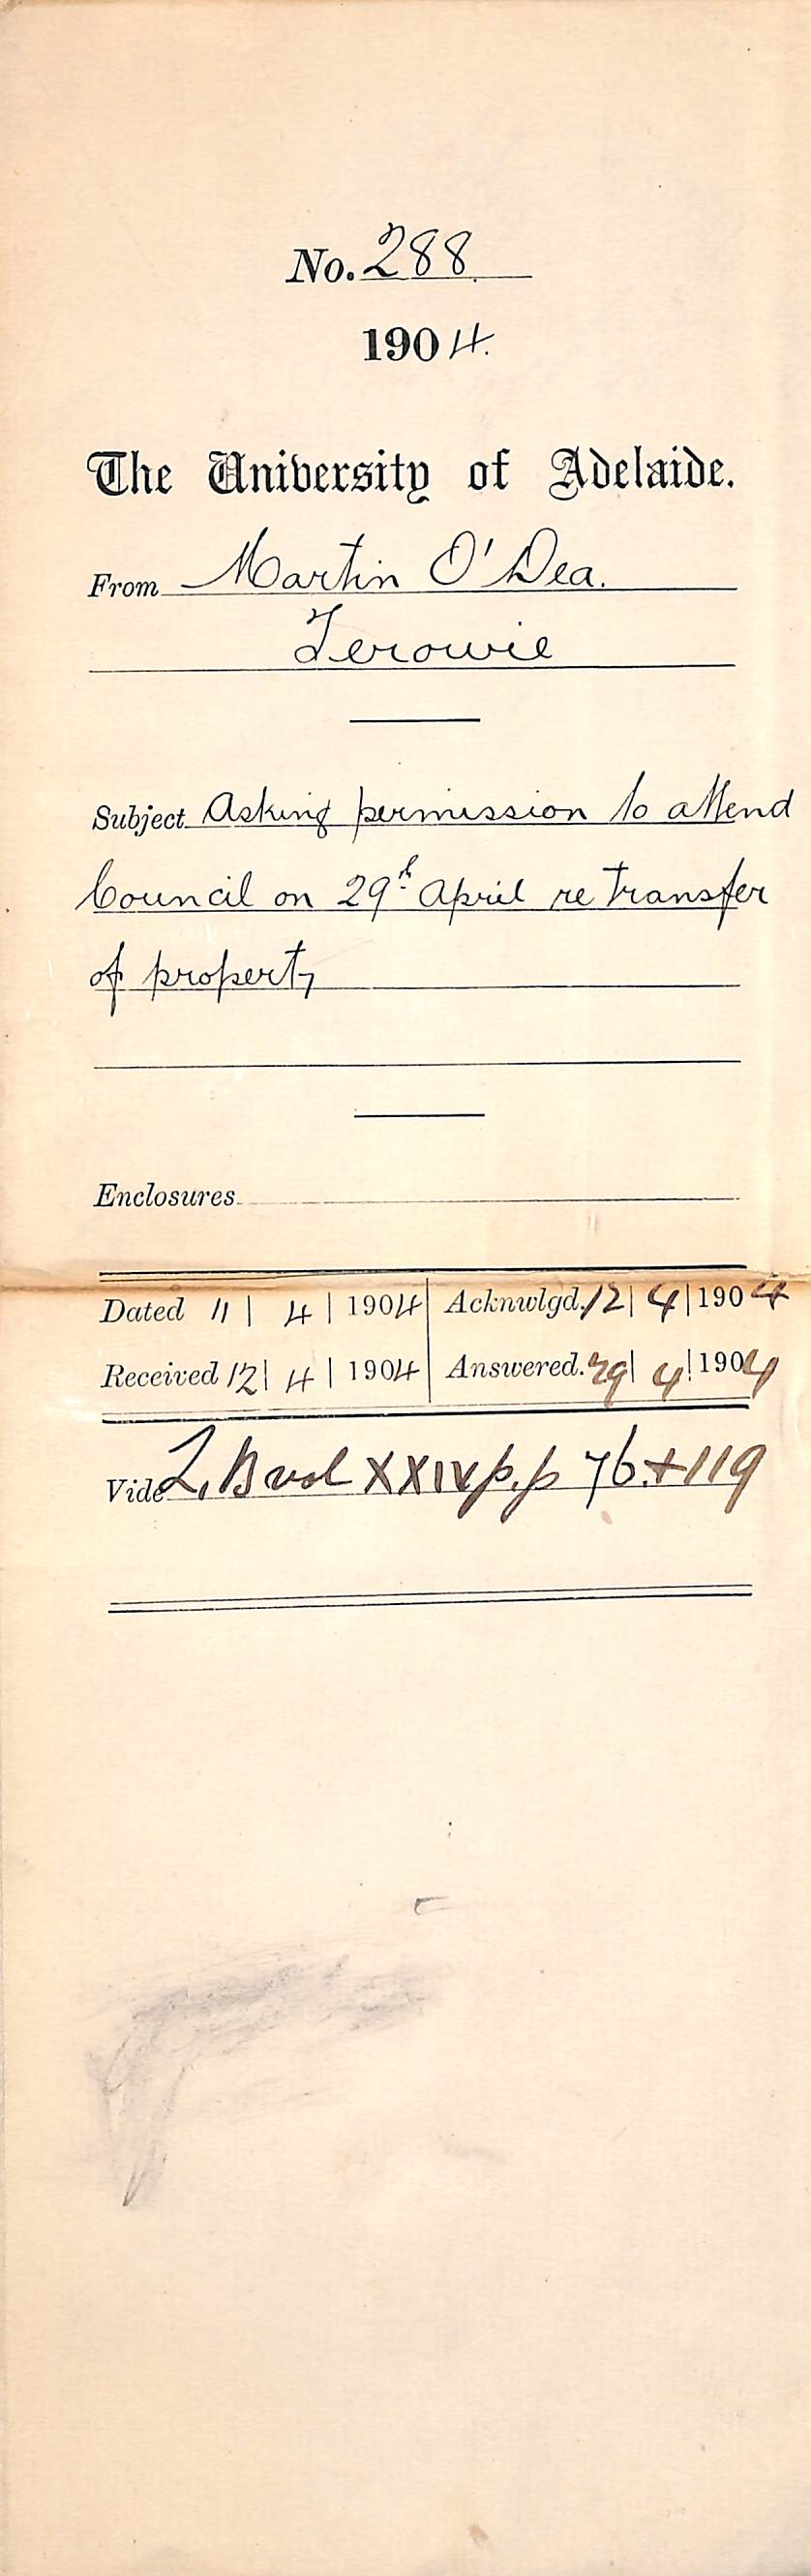 No. 288
1904.
The University of Adelaide.
From Martin O'Dea.
Terowie
Subject Asking permission to attend
Council on 29th April re transfer
of property
Enclosures
Dated 11 | 4 | 1904 | Acknwlgd. 12 | 4 | 1904
Received 12 | 4 | 1904 | Answered. 29 | 4 | 1904
Vide L. B vol XXIV p.p 76 + 119